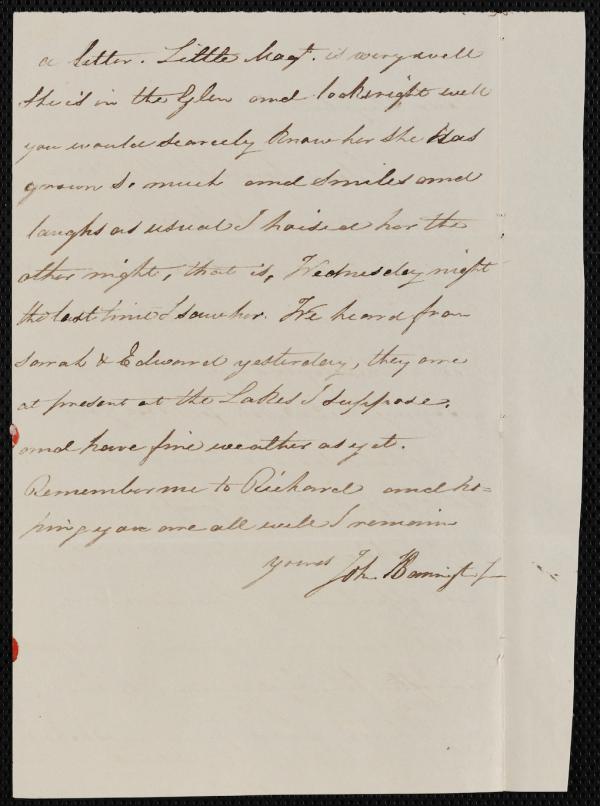 a letter. Little Magt. is very well
she is in the Glen and looks right well
you would scarcely know her she has
grown so much and smiles and
laughs as usual I haised her the
other night, that is, Wednesday night
the last time I saw her. We heard from
Sarah & Edward yesterday, they are
at present at the Lakes I suppose.
and have fine weather as yet.
Remember me to Richard and ho=
ping you are all well I remain
yours John Barringt Jr